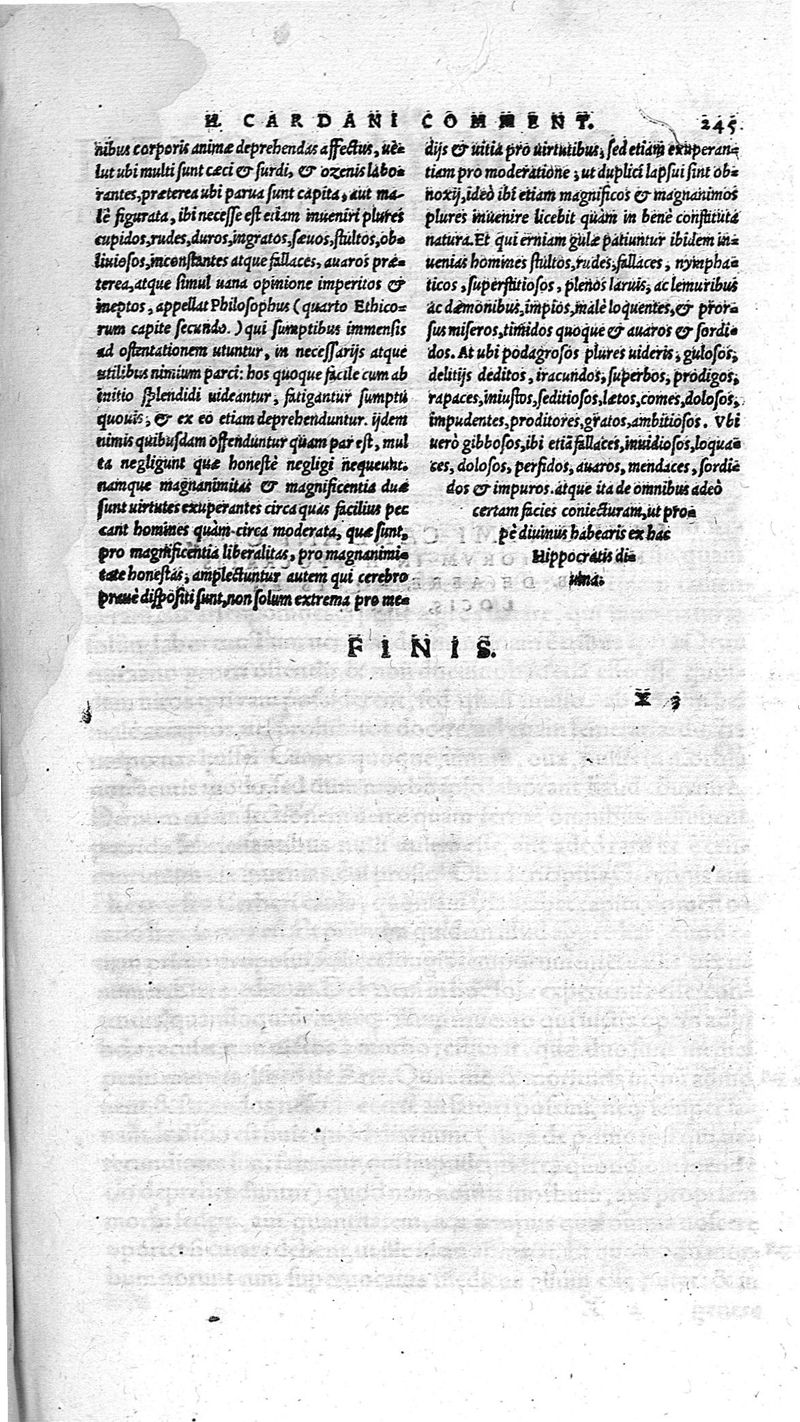 H. CARDANI COMMENT. 245.
nibus corporis animæ deprehendas affectus, ue=
lut ubi multi sunt cæci & surdi, & ozenis labo=
rantes, præterea ubi parua sunt capita, aut ma=
lè figurata, ibi necesse est etiam inueniri plures
cupidos, rudes, duros, ingratos, sæuos, stultos, ob=
liuiosos, inconstantes atque fallaces, auaros præ=
terea, atque simul uana opinione imperitos &
ineptos, appellat Philosophus (quarto Ethico=
rum capite secundo.) qui sumptibus immensis
ad ostentationem utuntur, in necessarijs atque
utilibus nimium parci: hos quoque facile cum ab
initio splendidi uideantur, fatigantur sumptu
quouis; & ex eo etiam deprehenduntur. ijdem
nimis quibusdam offenduntur quàm par est, mul
ta negligunt quæ honestè negligi nequeunt.
namque magnanimitas & magnificentia duæ
sunt uirtutes exuperantes circa quas facilius pec
cant homines quàm circa moderata, quæ sunt,
pro magnificentia liberalitas, pro magnanimi=
tate honestas; amplectuntur autem qui cerebro
prauè dispositi sunt, non solum extrema pro me=
dijs & uitia pro uirtutibus; sed etiam exuperan=
tiam pro moderatione; ut duplici lapsui sint ob=
noxij, ideò ibi etiam magnificos & magnanimos
plures inuenire licebit quàm in benè constituta
natura. Et qui erniam gulæ patiuntur ibidem in=
uenias homines stultos, rudes, fallaces, nympha=
ticos, superstitiosos, plenos laruis, ac lemuribus
ac dæmonibus, impios, malè loquentes, & pror=
sus miseros, timidos quoque & auaros & sordi=
dos. At ubi podagrosos plures uideris, gulosos,
delitijs deditos, iracundos, superbos, prodigos,
rapaces, iniustos, seditiosos, lætos, comes, dolosos,
impudentes, proditores, gratos, ambitiosos. Vbi
uerò gibbosos, ibi etiã fallaces, inuidiosos, loqua=
ces, dolosos, perfidos, auaros, mendaces, sordi=
dos & impuros. atque ita de omnibus adeò
certam facies coniecturam, ut pro=
pè diuinus habearis ex hac
Hippocratis di=
uina.
FINIS.
X 3